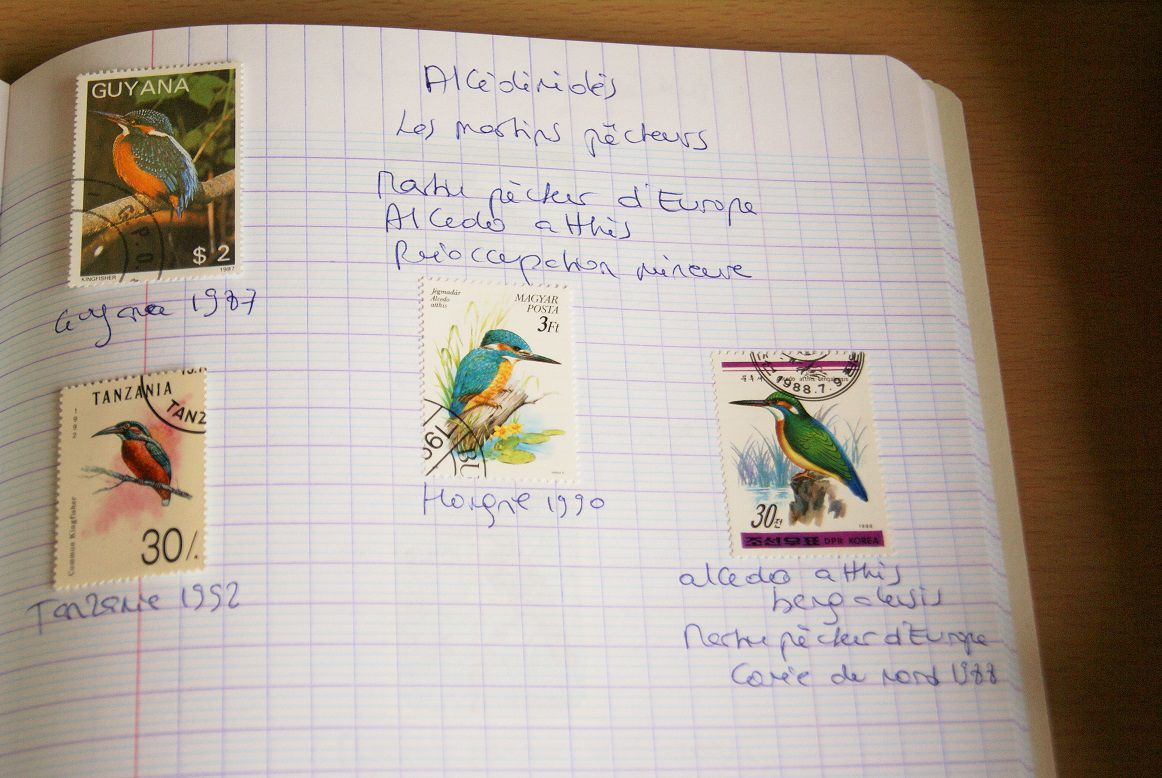 GUYANA
$ 2
KINGFISHER
1987
Guyane 1987
Alcédinidés
Les martins pêcheurs
Martin pêcheur d'Europe
Alcedo atthis
Préoccupation mineure
Jégmadár
Alcedo
atthis
MAGYAR
POSTA
3Ft
Hongrie 1990
TANZANIA
TANZ
1992
Common Kingfisher
30/.
Tanzanie 1992
1988.7.9
atthis bengalensis
30전
1988
조선우표 DPR KOREA
alcedo atthis
bengalensis
Martin pêcheur d'Europe
Corée du nord 1988